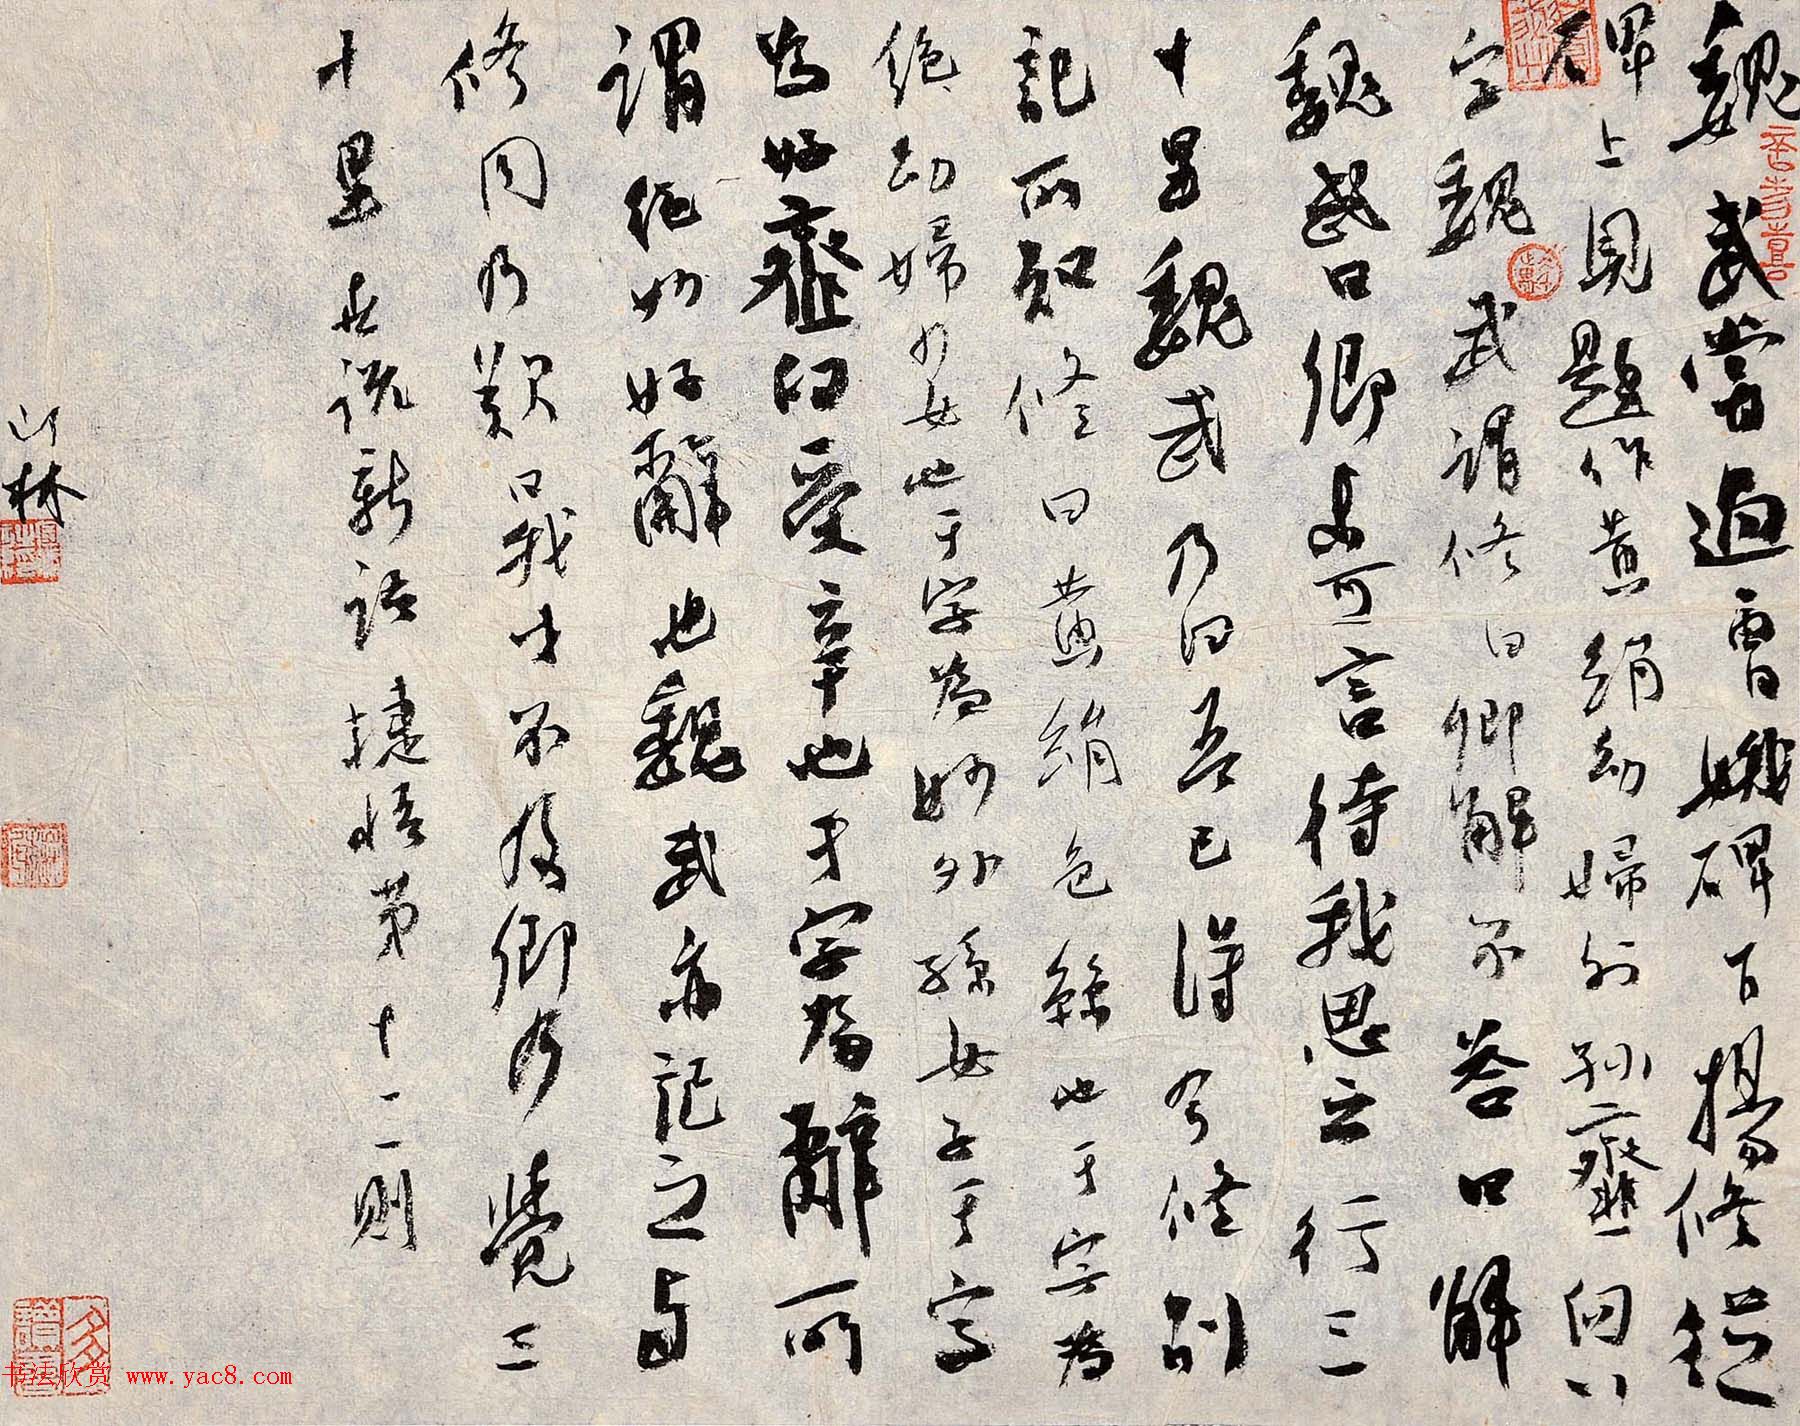 魏武嘗過曹娥碑下楊修從
碑上見題作黃絹幼婦外孫齏臼八
字魏武謂修曰卿解不答曰解
魏武曰卿未可言待我思之行三
十里魏武乃曰吾已得令修別
記所知修曰黃絹色絲也于字為
絕幼婦少女也于字為妙外孫女子于字
為好齏臼受辛也于字為辭所
謂絕妙好辭也魏武亦記之與
修同乃歎曰我才不及卿乃覺三
十里世說新語捷悟第十二則
林
书法欣赏 www.yac8.com